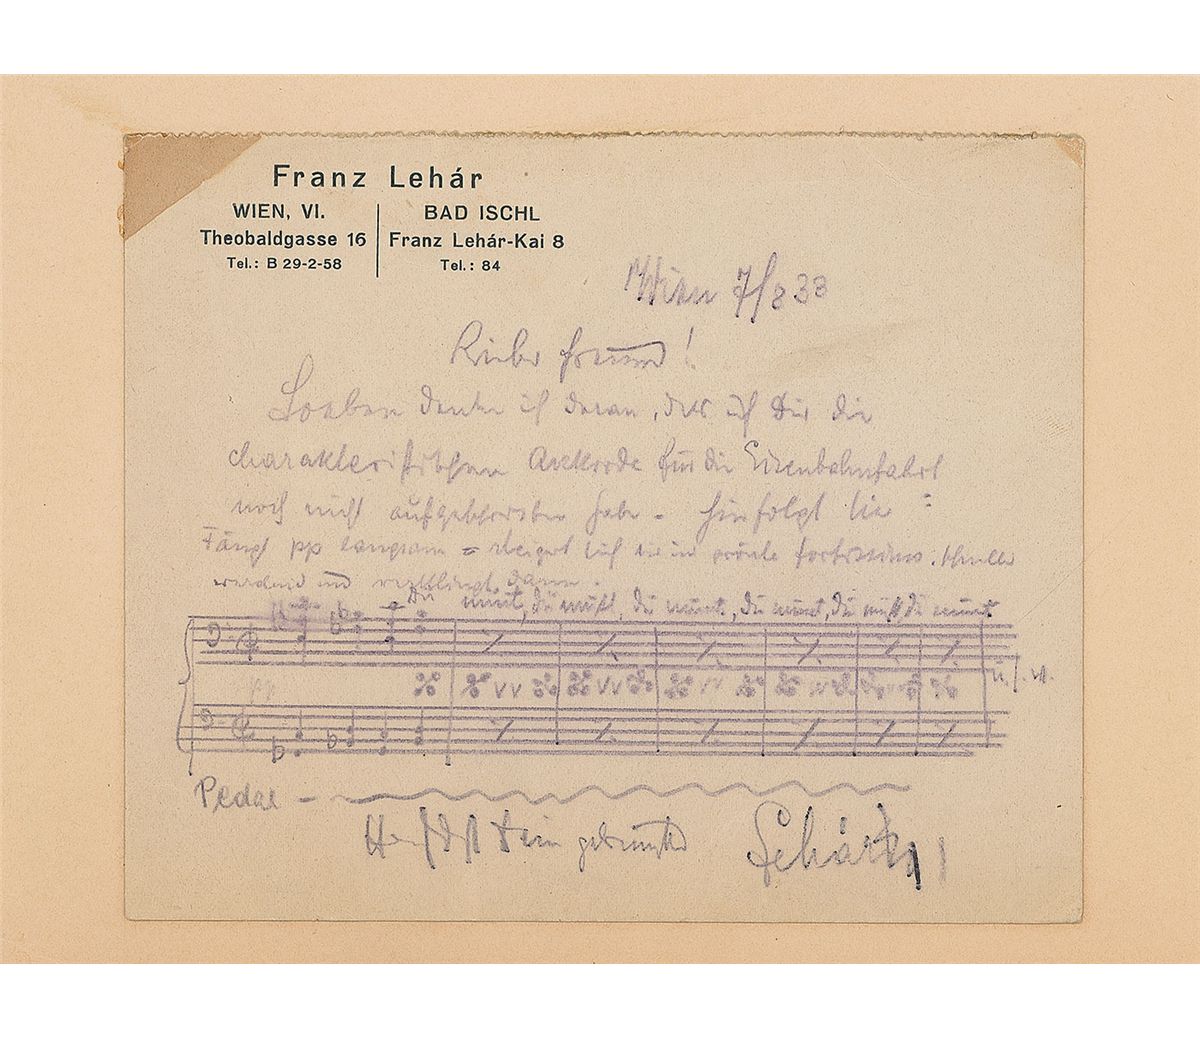 Franz Lehár
WIEN, VI.
Theobaldgasse 16
Tel.: B 29-2-58
BAD ISCHL
Franz Lehár-Kai 8
Tel.: 84
Wien 7/8 33
Lieber Freund!
Soeben denke ich daran, daß ich Dir die
charakteristischen Akkorde für die Eisenbahnfahrt
noch nicht aufgeschrieben habe – hier folgt sie:
Fängt pp langsam – steigert sich bis ins fortissimo. schneller
werdend und verklingt dann.
Du mußt, du mußt, du mußt, du mußt, du mußt du mußt
pp
u.s.w.
Pedal –
Herzlichst Dein
Lehár